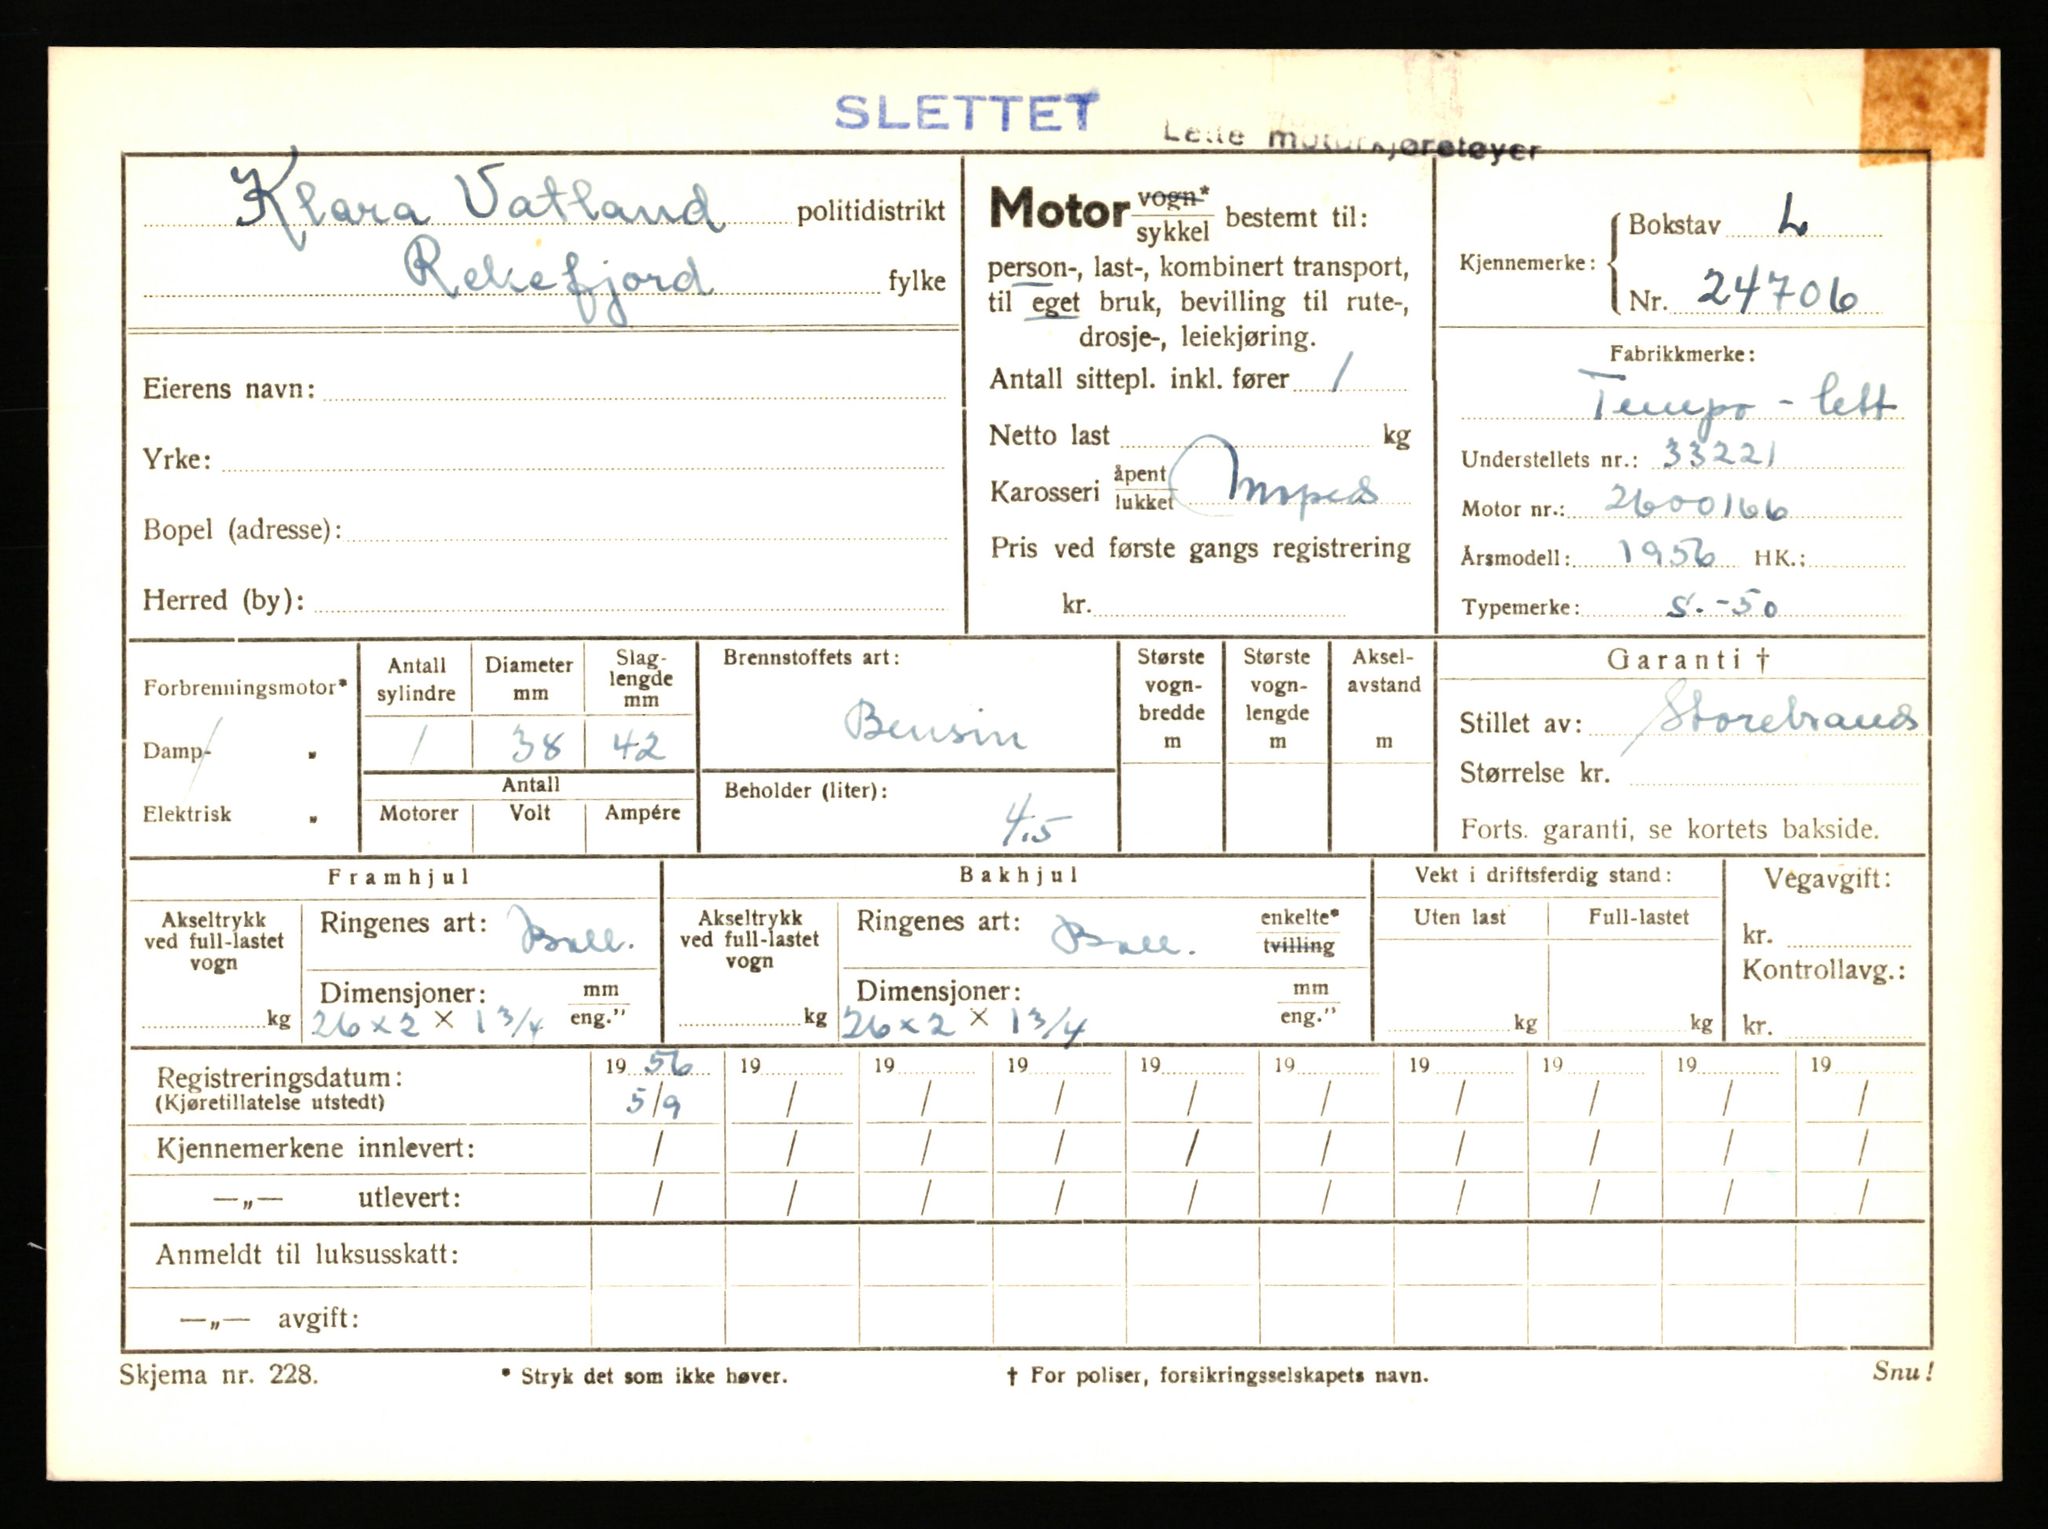 SLETTET
Lette motorkjøretøyer
Klara Vatland politidistrikt
Rekefjord fylke
Eierens navn:
Yrke:
Bopel (adresse):
Herred (by):
Motor vogn* / sykkel bestemt til:
person-, last-, kombinert transport,
til eget bruk, bevilling til rute-,
drosje-, leiekjøring.
Antall sittepl. inkl. fører 1
Netto last kg
Karosseri åpent / lukket Moped
Pris ved første gangs registrering
kr.
Kjennemerke:
Bokstav L
Nr. 24706
Fabrikkmerke:
Tempo - lett
Understellets nr.: 33221
Motor nr.: 2600166
Årsmodell: 1956 HK.:
Typemerke: S.-50
Forbrenningsmotor*
Damp- „
Elektrisk „
Antall sylindre
1
Diameter mm
38
Slag-
lengde
mm
42
Antall
Motorer Volt Ampére
Brennstoffets art:
Bensin
Beholder (liter):
4.5
Største
vogn-
bredde
m
Største
vogn-
lengde
m
Aksel-
avstand
m
Garanti †
Stillet av: Storebrand
Størrelse kr.
Forts. garanti, se kortets bakside.
Framhjul
Akseltrykk
ved full-lastet
vogn
kg
Ringenes art: Ball.
Dimensjoner: mm
26 x 2 x 1 3/4 eng."
Bakhjul
Akseltrykk
ved full-lastet
vogn
kg
Ringenes art: Ball. enkelte* / tvilling
Dimensjoner: mm
26 x 2 x 1 3/4 eng."
Vekt i driftsferdig stand:
Uten last Full-lastet
kg kg
Vegavgift:
kr.
Kontrollavg.:
kr.
Registreringsdatum: 19 56 19 19 19 19 19 19 19 19 19
(Kjøretillatelse utstedt) 5/9 / / / / / / / / /
Kjennemerkene innlevert: / / / / / / / / / /
—„— utlevert: / / / / / / / / / /
Anmeldt til luksusskatt:
—„— avgift:
Skjema nr. 228.
* Stryk det som ikke høver.
† For poliser, forsikringsselskapets navn.
Snu!